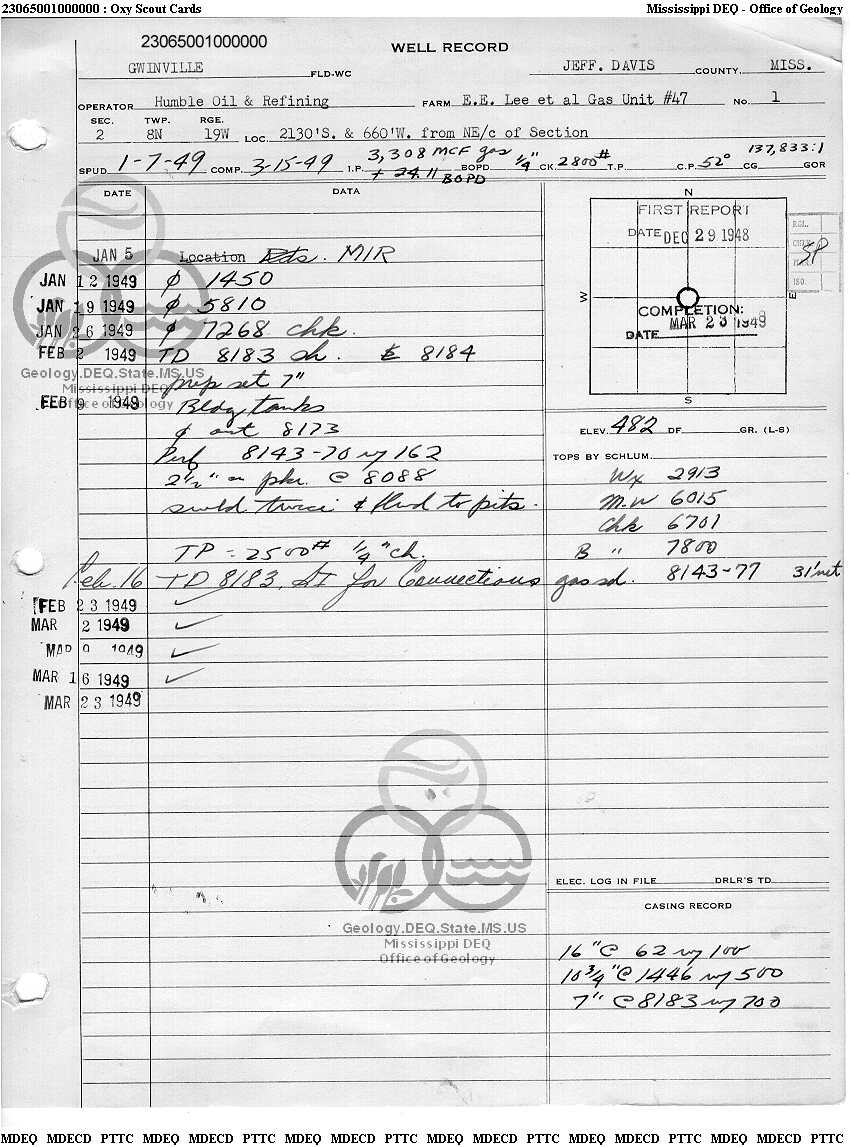 23065001000000 : Oxy Scout Cards Mississippi DEQ - Office of Geology
23065001000000
WELL RECORD
GWINVILLE FLD-WC JEFF. DAVIS COUNTY, MISS.
OPERATOR Humble Oil & Refining FARM E.E. Lee et al Gas Unit #47 No. 1
SEC. TWP. RGE.
2 8N 19W LOC. 2130'S. & 660'W. from NE/c of Section
SPUD 1-7-49 COMP. 3-15-49 I.P. 3,308 MCF gas BOPD 1/4" CK. 2800# T.P. C.P. 52° CG 137,833:1 GOR
+ 24.11 BOPD
DATE DATA
N
FIRST REPORT
DATE DEC 29 1948
W E
COMPLETION:
MAR 23 1949
DATE
S
RGL.
CHLK.
ISO.
SP
JAN 5 Location MIR
JAN 12 1949 ₵ 1450
JAN 19 1949 ₵ 5810
JAN 26 1949 ₵ 7268 chk.
FEB 2 1949 TD 8183 sh. E 8184
prep set 7"
FEB 9 1949 Bldg tanks
₵ out 8173
Perf 8143-70 w/ 162
2 1/2" on pkr. @ 8088
swbd twice & flwd to pits.
TP - 2500# 1/4" ch.
Feb. 16 TD 8183, SI for Connections
FEB 23 1949 ✓
MAR 2 1949 ✓
MAR 9 1949 ✓
MAR 16 1949 ✓
MAR 23 1949
ELEV. 482 DF GR. (L-S)
TOPS BY SCHLUM.
Wx 2913
M.W 6015
Chk 6701
B " 7800
gas sd. 8143-77 31' net
ELEC. LOG IN FILE DRLR'S TD
CASING RECORD
16" @ 62 w/ 100
10 3/4" @ 1446 w/ 500
7" @ 8183 w/ 700
Geology.DEQ.State.MS.US
Mississippi DEQ
Office of Geology
Geology.DEQ.State.MS.US
Mississippi DEQ
Office of Geology
MDEQ MDECD PTTC MDEQ MDECD PTTC MDEQ MDECD PTTC MDEQ MDECD PTTC MDEQ MDECD PTTC MDEQ MDECD PTTC